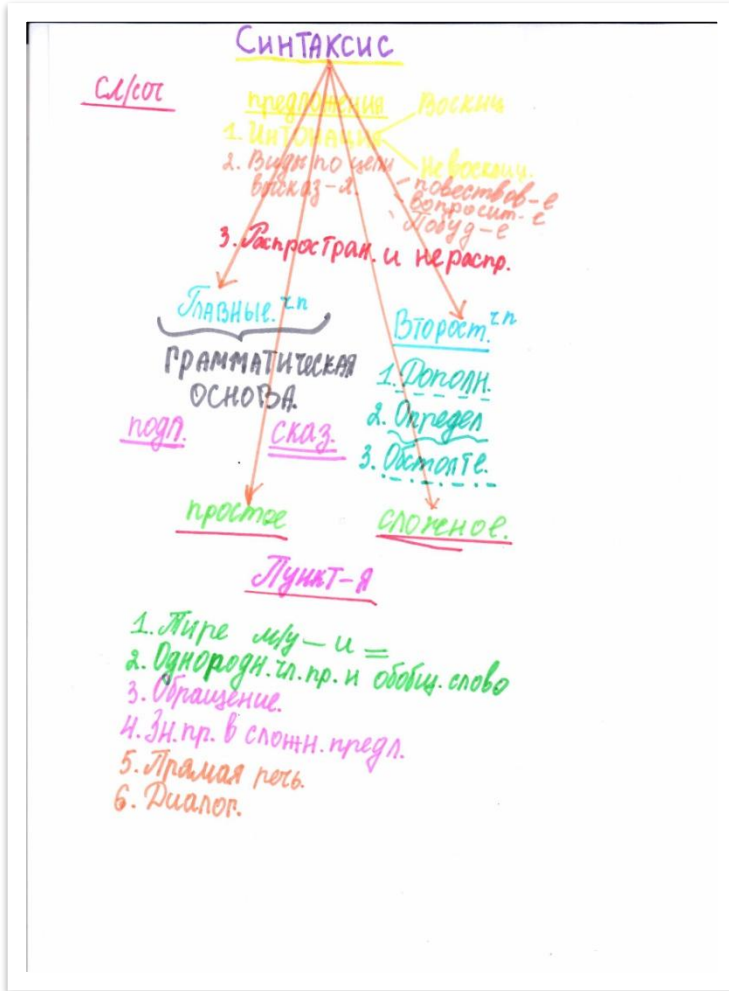 Синтаксис
Сл/соч
предложения
Восклиц
1. Интонация
Невосклиц.
2. Виды по цели
высказ-я.
повествов-е
вопросит-е
Побуд-е
3. Распростран. и нераспр.
Главные. чл
Второст. чл
ГРАММАТИЧЕСКАЯ
ОСНОВА.
1. Дополн.
подл.
сказ.
2. Определ
3. Обстояте.
простое
сложное.
Пункт-я
1. Тире м/у — и =
2. Однородн. чл. пр. и обобщ. слово
3. Обращение.
4. Зн. пр. в сложн. предл.
5. Прямая речь.
6. Диалог.